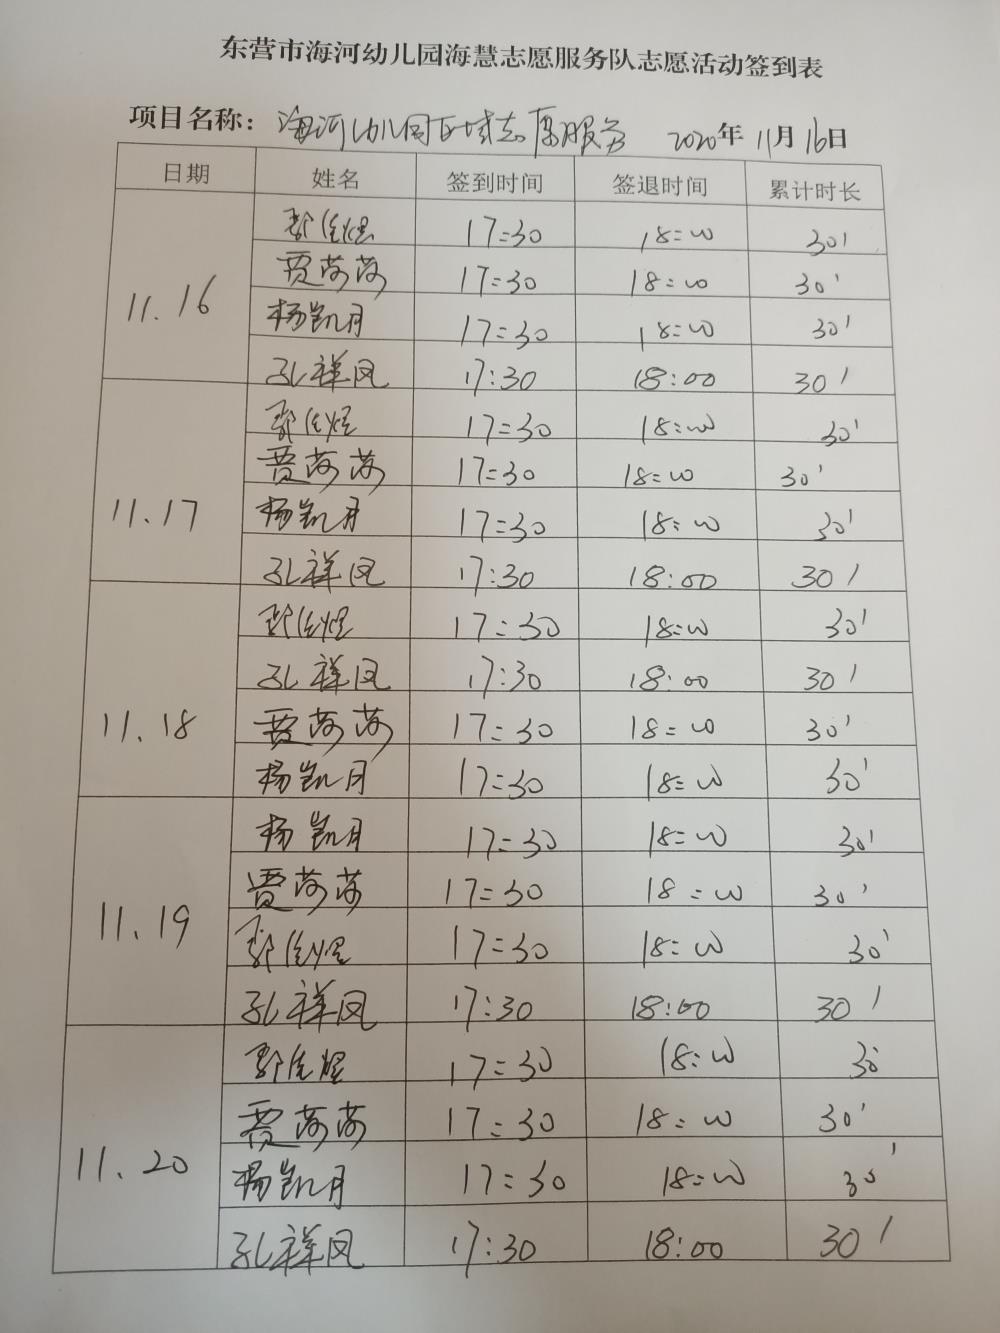 东营市海河幼儿园海慧志愿服务队志愿活动签到表
项目名称：海河幼儿园区域志愿服务 2020年11月16日
日期 姓名 签到时间 签退时间 累计时长
11.16
郭 17:30 18:00 30'
贾苪苪 17:30 18:00 30'
杨凯月 17:30 18:00 30'
孔祥凤 17:30 18:00 30'
11.17
郭 17:30 18:00 30'
贾苪苪 17:30 18:00 30'
杨凯月 17:30 18:00 30'
孔祥凤 17:30 18:00 30'
11.18
郭 17:30 18:00 30'
孔祥凤 17:30 18:00 30'
贾苪苪 17:30 18:00 30'
杨凯月 17:30 18:00 30'
11.19
杨凯月 17:30 18:00 30'
贾苪苪 17:30 18:00 30'
郭 17:30 18:00 30'
孔祥凤 17:30 18:00 30'
11.20
郭 17:30 18:00 30'
贾苪苪 17:30 18:00 30'
杨凯月 17:30 18:00 30'
孔祥凤 17:30 18:00 30'